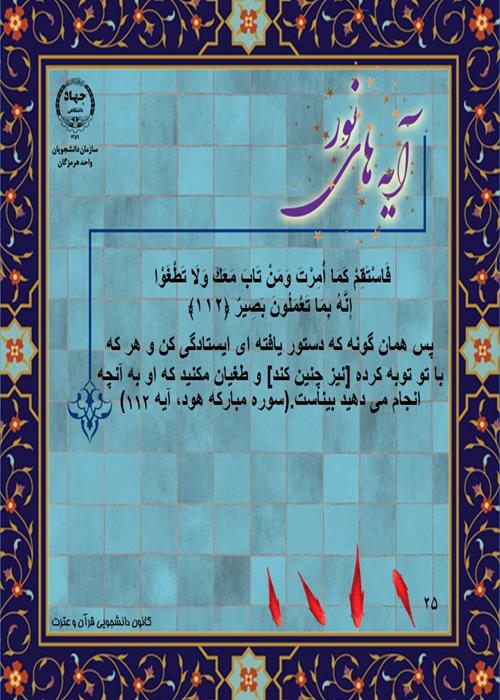 جهاد
دانشگاهی
۱۳۵۹
سازمان دانشجویان
واحد هرمزگان
آیه های نور
فَاسْتَقِمْ كَمَا أُمِرْتَ وَمَنْ تَابَ مَعَكَ وَلَا تَطْغَوْا
إِنَّهُ بِمَا تَعْمَلُونَ بَصِيرٌ ﴿۱۱۲﴾
پس همان گونه که دستور یافته ای ایستادگی کن و هر که
با تو توبه کرده [نیز چنین کند] و طغیان مکنید که او به آنچه
انجام می دهید بیناست.(سوره مبارکه هود، آیه ۱۱۲)
۲۵
کانون دانشجویی قرآن و عترت